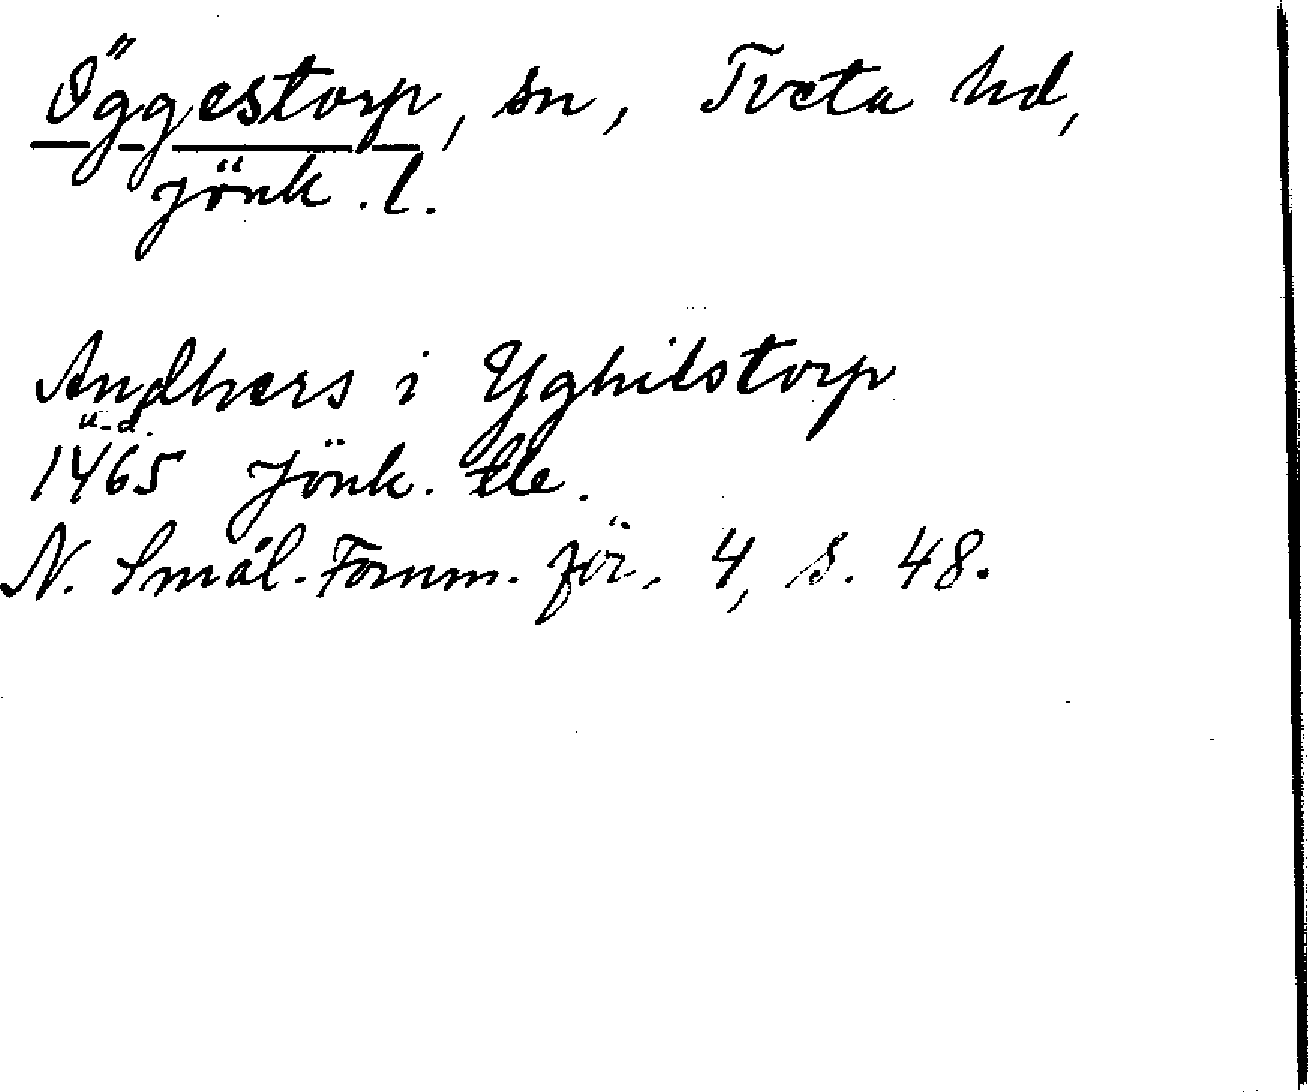 Öggestorp, sn, Tveta hd,
Jönk. l.
Andhers i Yghilstorp
u.d.
1465 Jönk. tle.
N. Smål. Fornm. för. 4, s. 48.